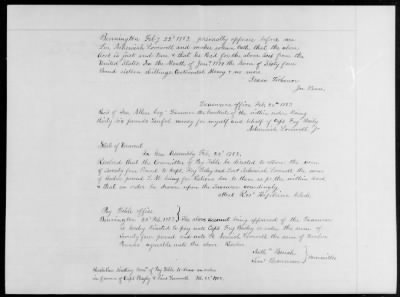 Bennington Feby 22d 1782. personally appears before me
Lieu Nehemiah Lovewell and makes solemn Oath that the above
Acct is just and true & that he Recd for the above acct from the
United States In the Month of Jany 1781 the Sum of Sixty four
Pound sixteen shillings Continental Money & no more
Isaac Tichenor
Jus Peace.
Treasurers office Feb. 26th 1782.
Recd of Ira Allen Esqr Treasurer the contents of the within order being
thirty six pounds Lawful money for myself and behalf of Capt Fry Bayley
Nehemiah Lovewell Jr
State of Vermont
In Gen Assembly Feb. 22d 1782,
Resolved that the Committee of Pay Table be directed to allow the sum
of twenty four Pound to Capt. Fry Bayley and Lieut Nehemiah Lovewell the sum
of twelve pound L. M. being for Rations due to them as pr the within Acct
& that an order be drawn upon the Treasurer accordingly
attest Ros. Hopkins Clerk
Pay Table office
Bennington 22d Feb. 1782.
The above account being approved of the Treasurer
is hereby directed to pay unto Capt. Fry Bayley or order the sum of
twenty four pound and unto Lt Nemiah Lovewell the sum of twelve
Pounds agreeable unto the above Resolve
Committee
Resolution directing Comtt of Pay Table to draw an order
in favour of Capt Bayley & Lieut Lovewell Feb. 22d 1782.